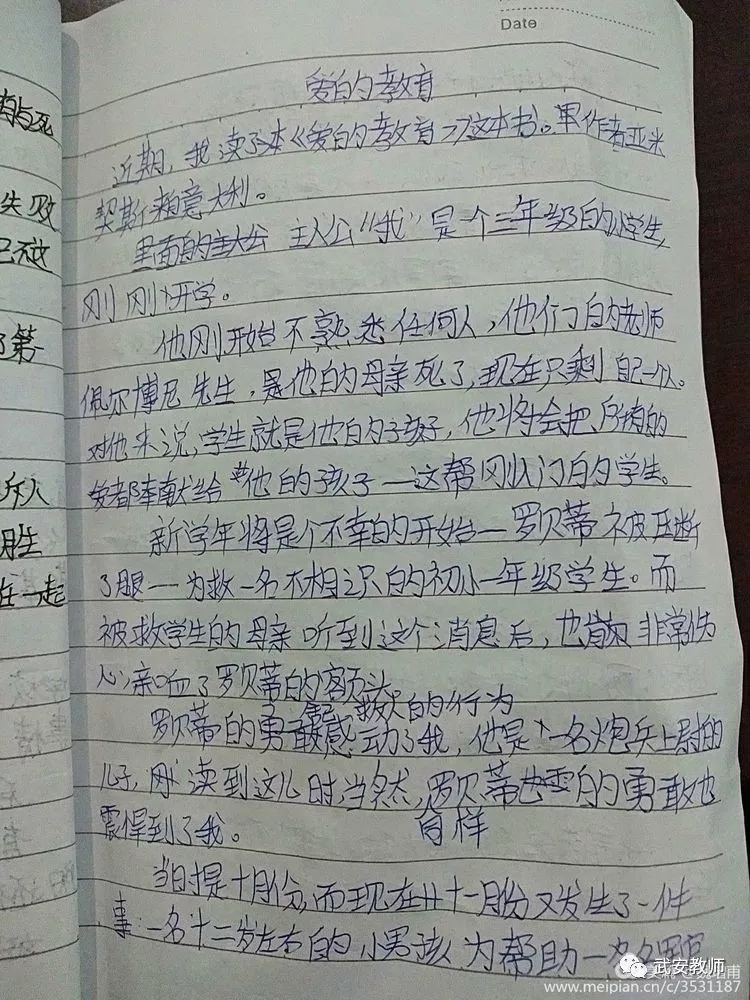 Date
爱的教育
近期,我读了本《爱的教育》这本书。军作者亚米
契斯来自意大利。
里面的主人公 主人公"我"是个三年级的小学生,
刚刚开学。
他刚开始不熟悉任何人,他们的老师
佩尔博尼先生,是他的母亲死了,现在只剩自己一个人。
对他来说,学生就是他的孩子,他将会把所有的
爱都奉献给他的孩子—这帮刚认门的学生。
新学年将是个不幸的开始—罗贝蒂被压断
了腿—为救一名不相识的初小一年级学生。而
被救学生的母亲听到这个消息后,也非常伤
心,亲吻了罗贝蒂的额头
救人的行为
罗贝蒂的勇敢感动了我,他是一名炮兵上尉的
儿子,刚读到这儿时,当然,罗贝蒂的勇敢也
震悍到了我。
同样
当时是十月份,而现在十一月份又发生了一件
事:一名十二岁左右的小男孩为帮助一名
有与死
失败
己不放
了第
斥人
胜
在一起
武安教师
www.meipian.cn/c/3531187